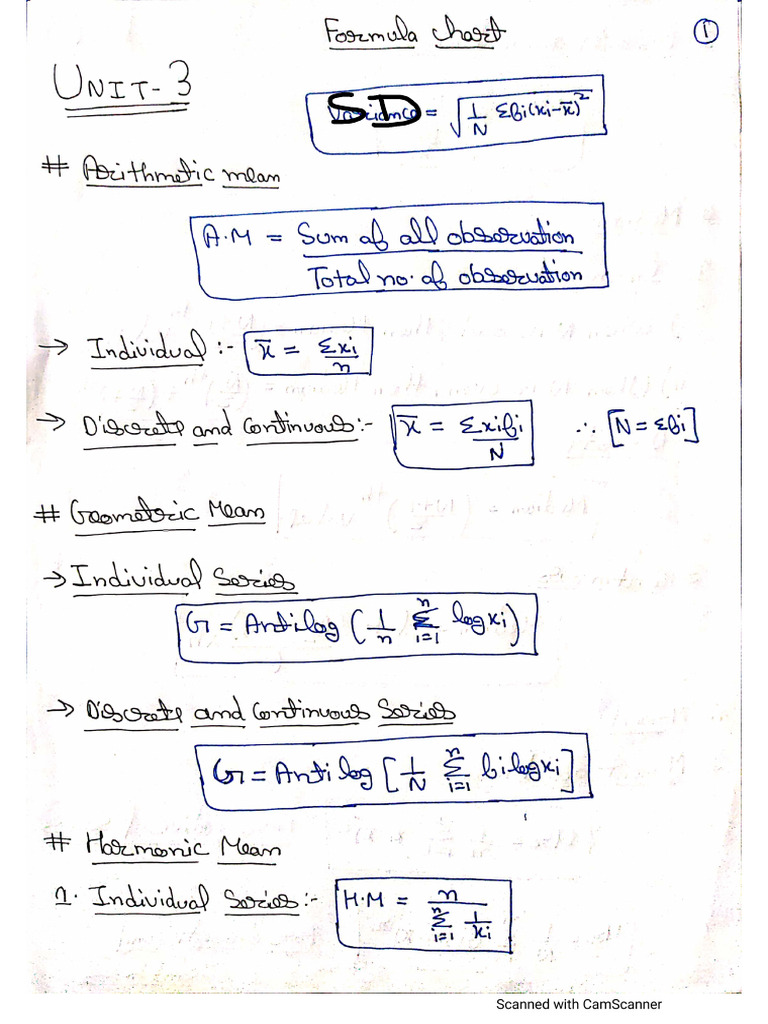 Formula chart
1
UNIT-3
SD = √(1/N Σfi(xi-x̄)²)
# Arithmetic mean
A.M = Sum of all observation / Total no. of observation
→ Individual :- x̄ = Σxi/n
→ Discrete and Continuous:- x̄ = Σxifi/N ∴ [N = Σfi]
# Geometric Mean
→ Individual Series
G = Antilog (1/n Σ_{i=1}^{n} log xi)
→ Discrete and Continuous Series
G = Antilog [1/N Σ_{i=1}^{n} fi log xi]
# Harmonic Mean
1. Individual Series:- H.M = n / Σ_{i=1}^{n} 1/xi
Scanned with CamScanner